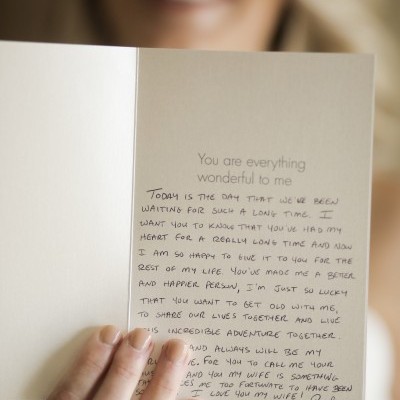 You are everything
wonderful to me
TODAY IS THE DAY THAT WE'VE BEEN
WAITING FOR SUCH A LONG TIME. I
WANT YOU TO KNOW THAT YOU'VE HAD MY
HEART FOR A REALLY LONG TIME AND NOW
I AM SO HAPPY TO GIVE IT TO YOU FOR THE
REST OF MY LIFE. YOU'VE MADE ME A BETTER
AND HAPPIER PERSON, I'M JUST SO LUCKY
THAT YOU WANT TO GET OLD WITH ME,
TO SHARE OUR LIVES TOGETHER AND LIVE
INCREDIBLE ADVENTURE TOGETHER.
AND ALWAYS WILL BE MY
FOR YOU TO CALL ME YOUR
AND YOU MY WIFE IS SOMETHING
ME TOO FORTUNATE TO HAVE BEEN
I LOVE YOU MY WIFE!